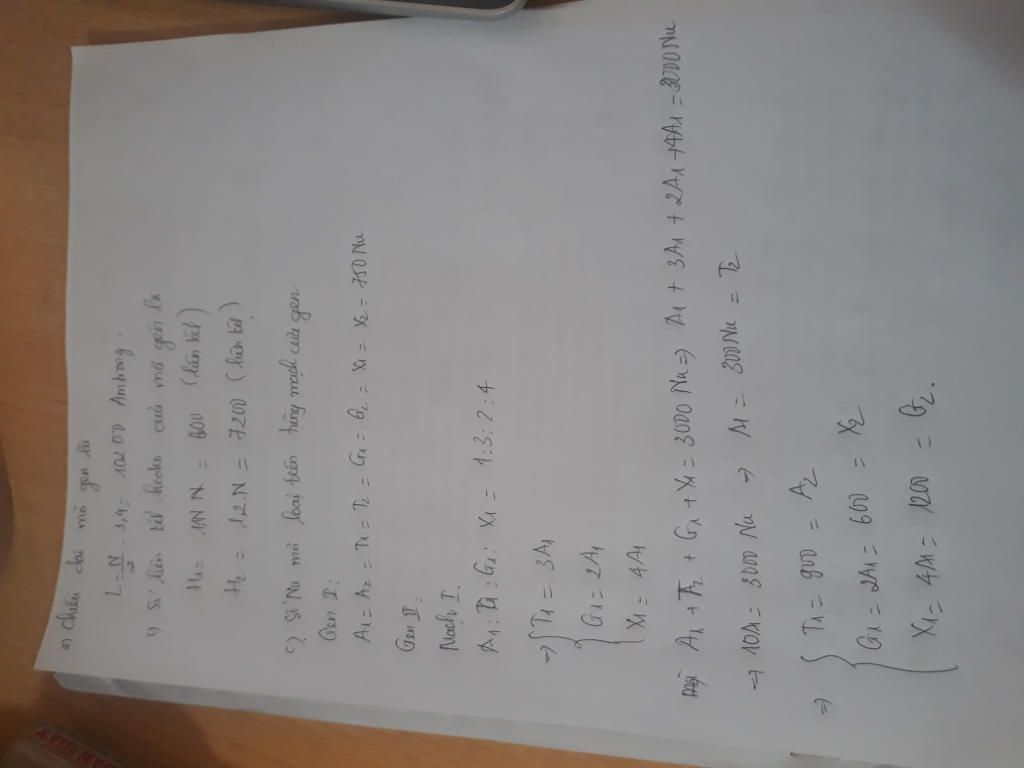 a) Chiều dài mỗi gen là
L = N/2 . 3,4 = 10200 Amhong.
b) Số liên kết hidro của mỗi gen là
H1 = 1,1N N = 6600 (liên kết)
H2 = 1,2.N = 7200 (liên kết)
c) Số Nu mỗi loại trên từng mạch của gen
Gen I:
A1 = A2 = T1 = T2 = G1 = G2 = X1 = X2 = 750 Nu
Gen II:
Mạch I.
A1 : T1 : G1 : X1 = 1:3:2:4
=> { T1 = 3A1
G1 = 2A1
X1 = 4A1
mà A1 + T2 + G1 + X1 = 3000 Nu => A1 + 3A1 + 2A1 + 4A1 = 3000 Nu
→ 10A1 = 3000 Nu → A1 = 300 Nu = T2
=> { T1 = 900 = A2
G1 = 2A1 = 600 = X2
X1 = 4A1 = 1200 = G2.